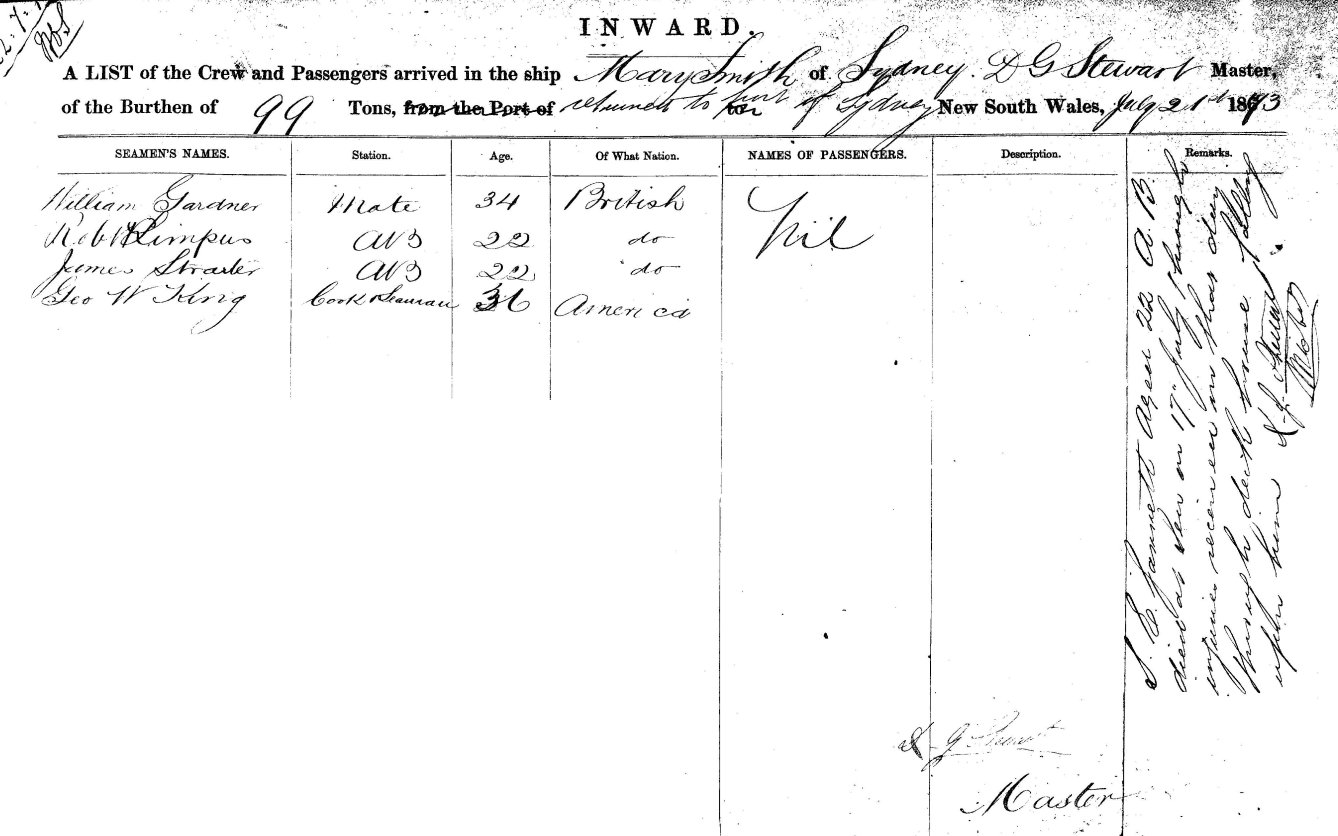 INWARD.
A LIST of the Crew and Passengers arrived in the ship Mary Smith of Sydney. D G Stewart Master,
of the Burthen of 99 Tons, from the Port of returned to port of Sydney to New South Wales, July 21st 1873
SEAMEN'S NAMES. Station. Age. Of What Nation. NAMES OF PASSENGERS. Description. Remarks.
William Gardner Mate 34 British Nil
Robt Limpus AB 22 do
James AB 22 do
Geo W King Cook & Seaman America
aged 22 A.B.
died at sea on 17th July through
injuries received on that day
through deck house falling
upon him D. G. Stewart
Master
D G Stewart
Master